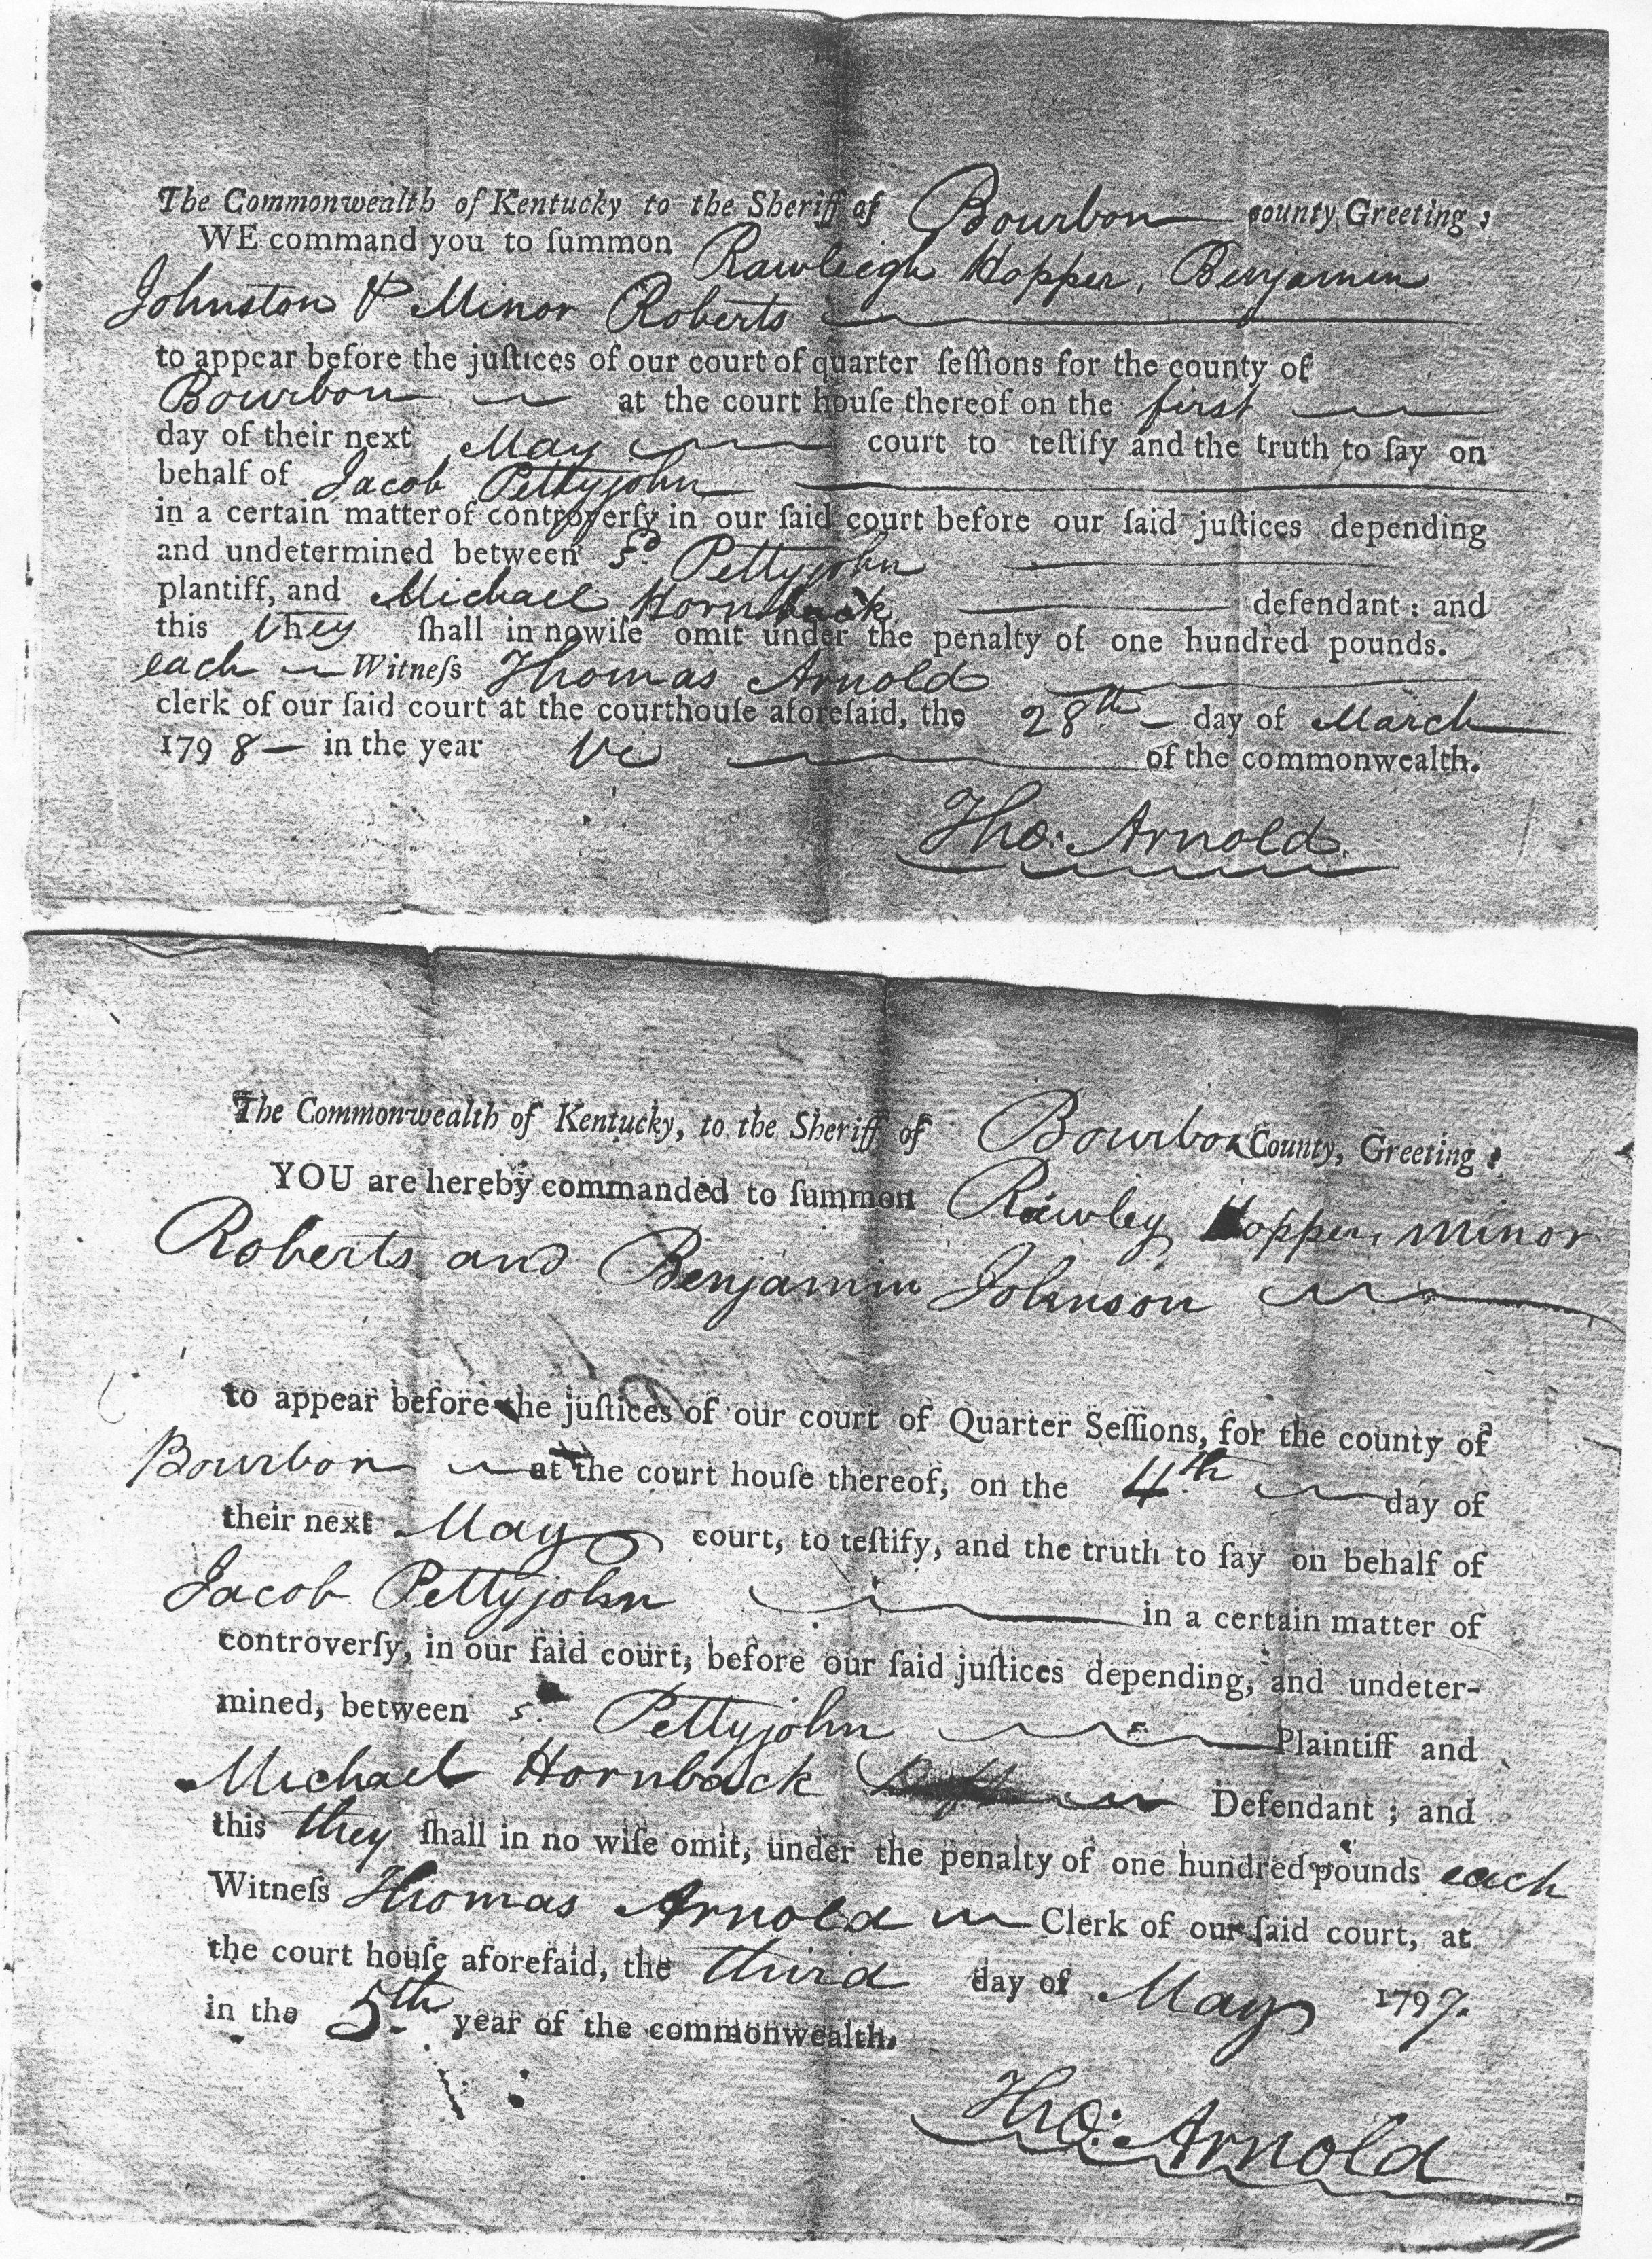 The Commonwealth of Kentucky to the Sheriff of Bourbon county Greeting:
WE command you to ſummon Rawleigh Hopper, Benjamin
Johnston & Minor Roberts
to appear before the juſtices of our court of quarter ſeſſions for the county of
Bourbon at the court houſe thereof on the first
day of their next May court to teſtify and the truth to ſay on
behalf of Jacob Pettyjohn
in a certain matter of controverſy in our ſaid court before our ſaid juſtices depending
and undetermined between sd Pettyjohn
plantiff, and Michael Hornback defendant: and
this they ſhall in nowiſe omit under the penalty of one hundred pounds.
each Witneſs Thomas Arnold
clerk of our ſaid court at the courthouſe aforeſaid, the 28th day of March
1798 in the year VI of the commonwealth.
Tho: Arnold.
The Commonwealth of Kentucky, to the Sheriff of Bourbon County, Greeting:
YOU are hereby commanded to ſummon Rawley Hopper, Minor
Roberts and Benjamin Johnson
to appear before the juſtices of our court of Quarter Seſſions, for the county of
Bourbon at the court houſe thereof, on the 4th day of
their next May court, to teſtify, and the truth to ſay on behalf of
Jacob Pettyjohn in a certain matter of
controverſy, in our ſaid court, before our ſaid juſtices depending, and undeter-
mined, between sd Pettyjohn Plaintiff and
Michael Hornback Defendant; and
this they ſhall in no wiſe omit, under the penalty of one hundred pounds each
Witneſs Thomas Arnold Clerk of our ſaid court, at
the court houſe aforeſaid, the third day of May 1797.
in the 5th year of the commonwealth.
Tho: Arnold